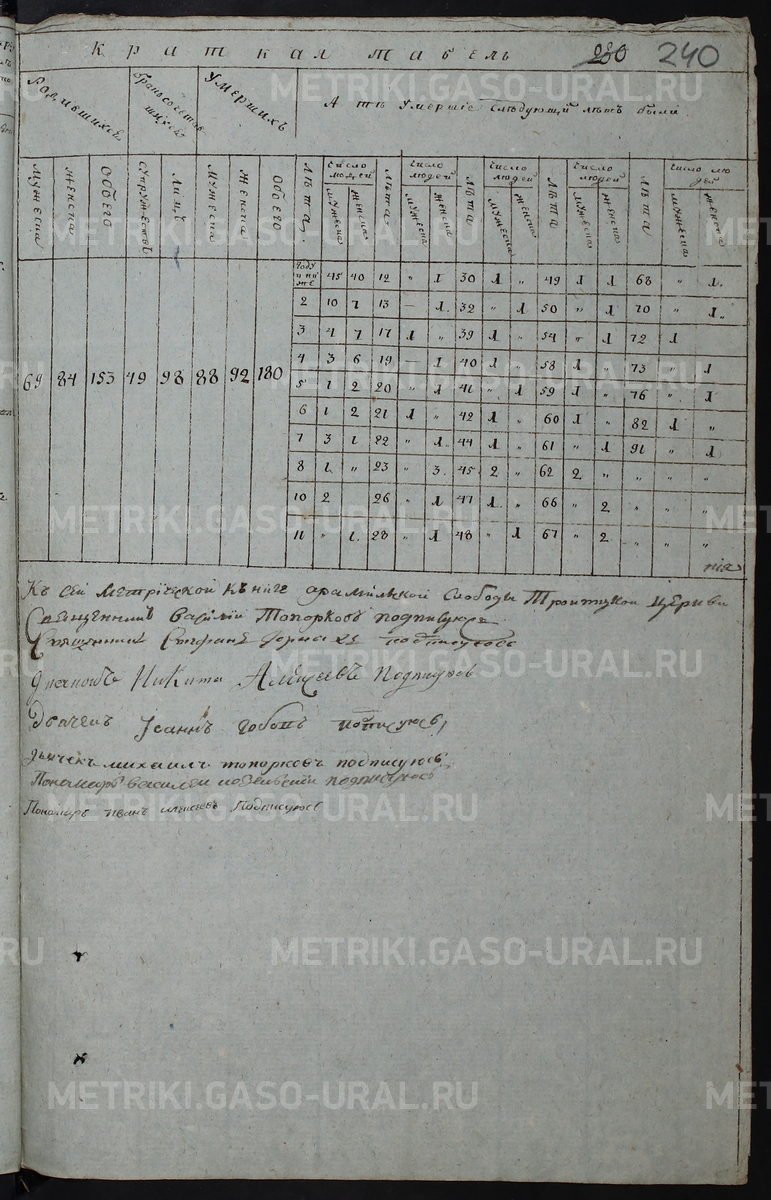 краткая табель 280 240
Родившихся Бракосочетавшихся Умерших А те умершие следующий летъ были
мужеска женска обоего супружествъ лицъ мужеска женска обоего Лѣта число людей Лѣта число людей Лѣта число людей Лѣта число людей Лѣта число людей
мужеска женска мужеска женска мужеска женска мужеска женска мужеска женска
году и ниже 45 40 12 " 1 30 1 " 49 1 1 68 " 1
2 10 7 13 — 1 32 " 1 50 " 1 70 " 1
3 4 7 17 1 " 39 1 " 54 " 1 72 1
69 84 153 49 98 88 92 180
4 3 6 19 — 1 40 1 " 58 1 " 73 " 1
5 1 2 20 " 1 41 " 1 59 1 " 76 " 1
6 1 2 21 1 " 42 1 " 60 1 " 82 1 "
7 3 1 22 " 1 44 1 " 61 " 1 91 " 1
8 1 " 23 " 3 45 2 " 62 2 " " " "
10 2 26 " 1 47 1 " 66 " 2 " " "
11 " 1 28 " 1 48 " 1 67 " 2 " " "
Къ сей метрической книге арамильской слободы Троитцкой церкви
Священникъ Василий Топорковъ подписуюсь
Священникъ Стефанъ подписуюсь
Диаконъ Никита Алексеевъ подписуюсь
Дьячекъ Іоаннъ подписуюсь
дьячекъ михаилъ топорковъ подписуюсь
Пономарь василей подписуюсь
Пономарь иванъ подписуюсь
METRIKI.GASO-URAL.RU